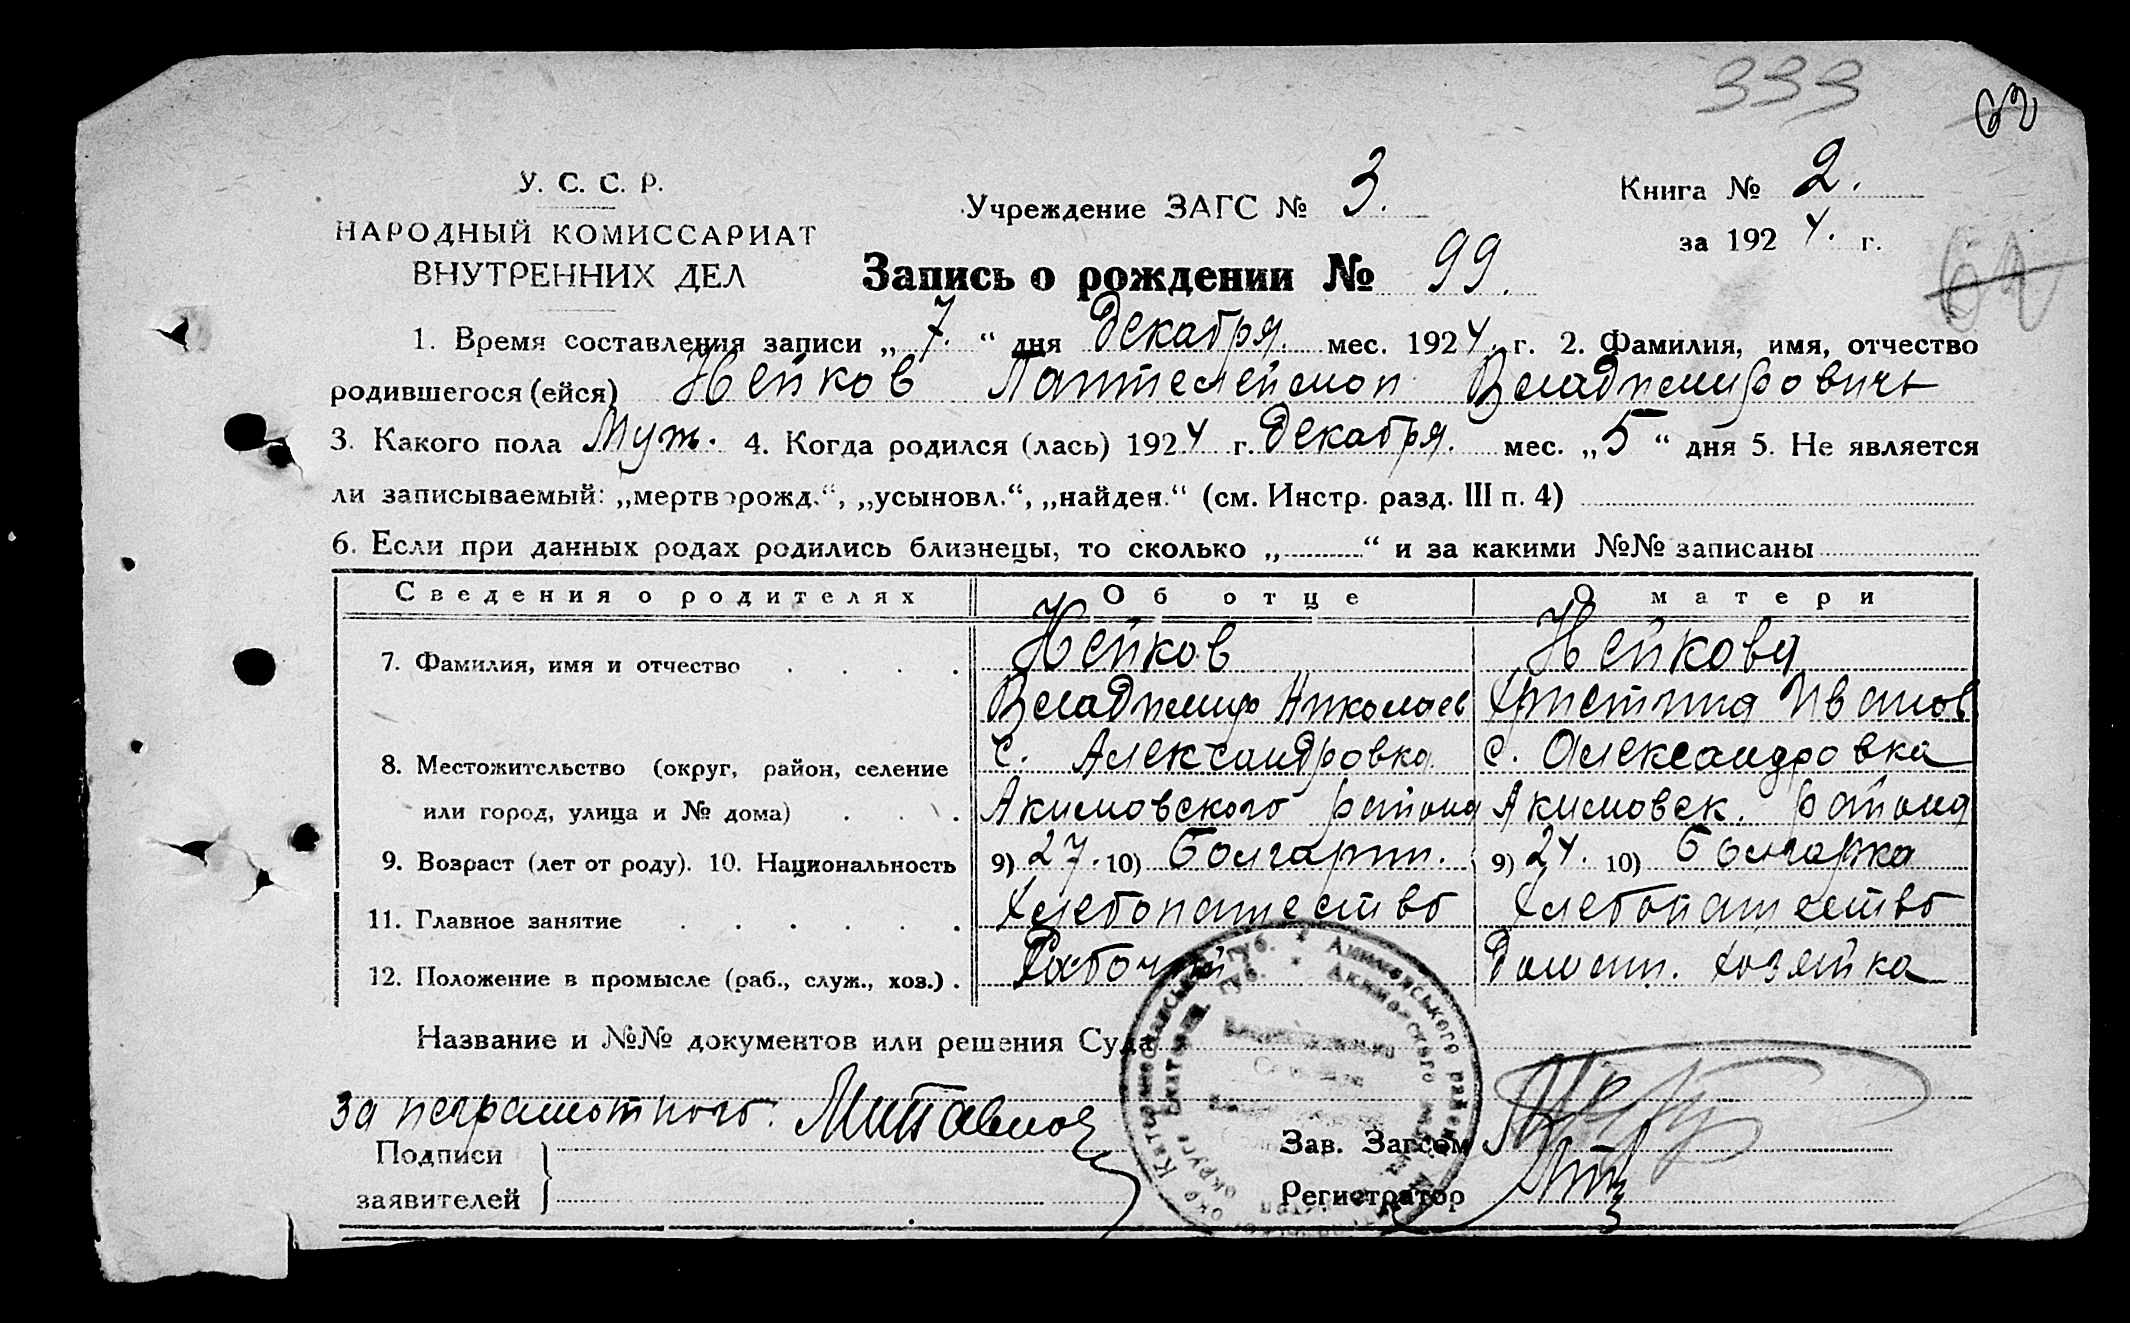 333
62
У. С. С. Р.
НАРОДНЫЙ КОМИССАРИАТ
ВНУТРЕННИХ ДЕЛ
Учреждение ЗАГС № 3.
Книга № 2.
за 1924. г.
62
Запись о рождении № 99.
1. Время составления записи „7.“ дня Декабря. мес. 1924. г. 2. Фамилия, имя, отчество
родившегося (ейся) Нейков Пантелеймон Владимирович
3. Какого пола Муж. 4. Когда родился (лась) 1924 г. Декабря. мес. „5“ дня 5. Не является
ли записываемый: „мертворожд.“, „усыновл.“, „найден.“ (см. Инстр. разд. III п. 4)
6. Если при данных родах родились близнецы, то сколько „ “ и за какими №№ записаны
Сведения о родителях Об отце О матери
7. Фамилия, имя и отчество Нейков Нейкова
Владимир Николаев Христина Иванов
8. Местожительство (округ, район, селение с. Александровка. с. Александровка
или город, улица и № дома) Акимовского района Акимовск. района
9. Возраст (лет от роду). 10. Национальность 9) 27. 10) Болгарин. 9) 24. 10) Болгарка
11. Главное занятие Хлебопашество Хлебопашество
12. Положение в промысле (раб., служ., хоз.) Рабочий Домаш. хозяйка
Название и №№ документов или решения Суда
за неграмотного.
Подписи
заявителей
Зав. Загсом
Регистратор